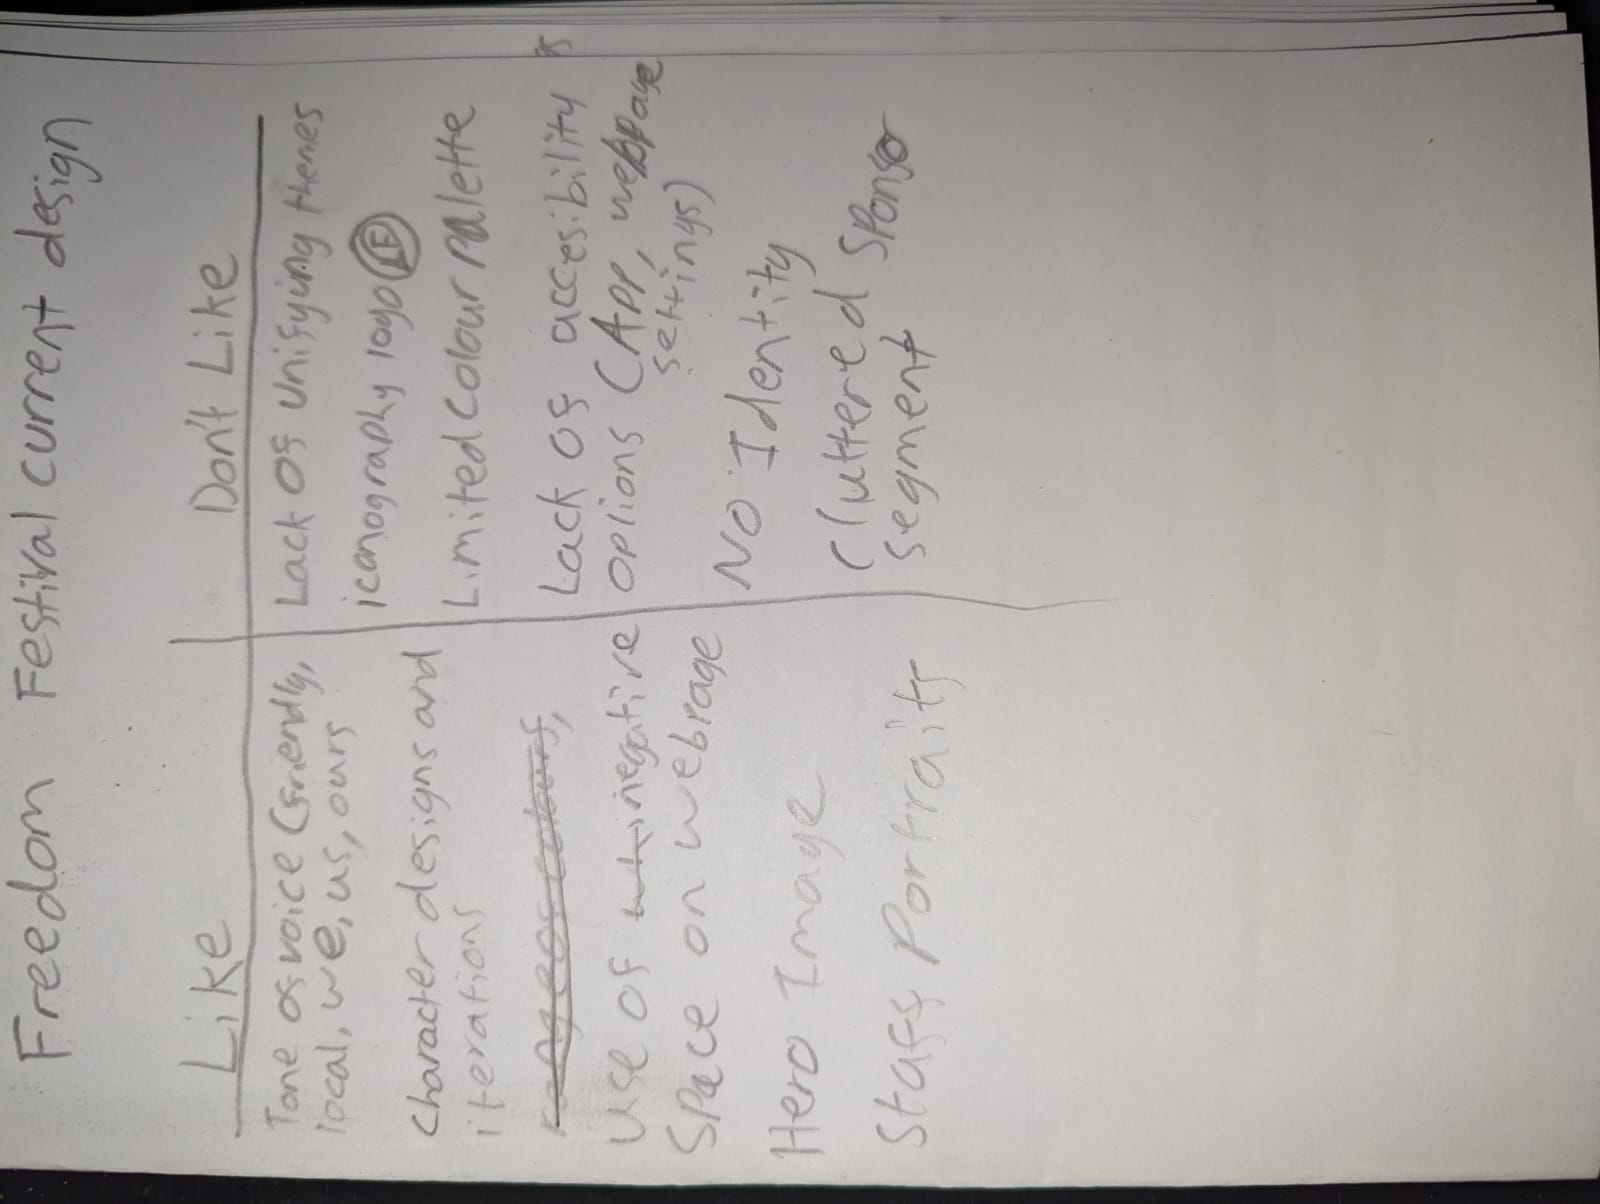 Freedom Festival current design
Like
Tone of voice (friendly,
local, we, us, ours
Character designs and
iterations
Use of negative
Space on webpage
Hero Image
Staff Portraits
Don't Like
Lack of unifying themes
iconography logo LF
Limited Colour Palette
Lack of accesibility
options (App, webpage
settings)
No Identity
Cluttered Sponsor
segment